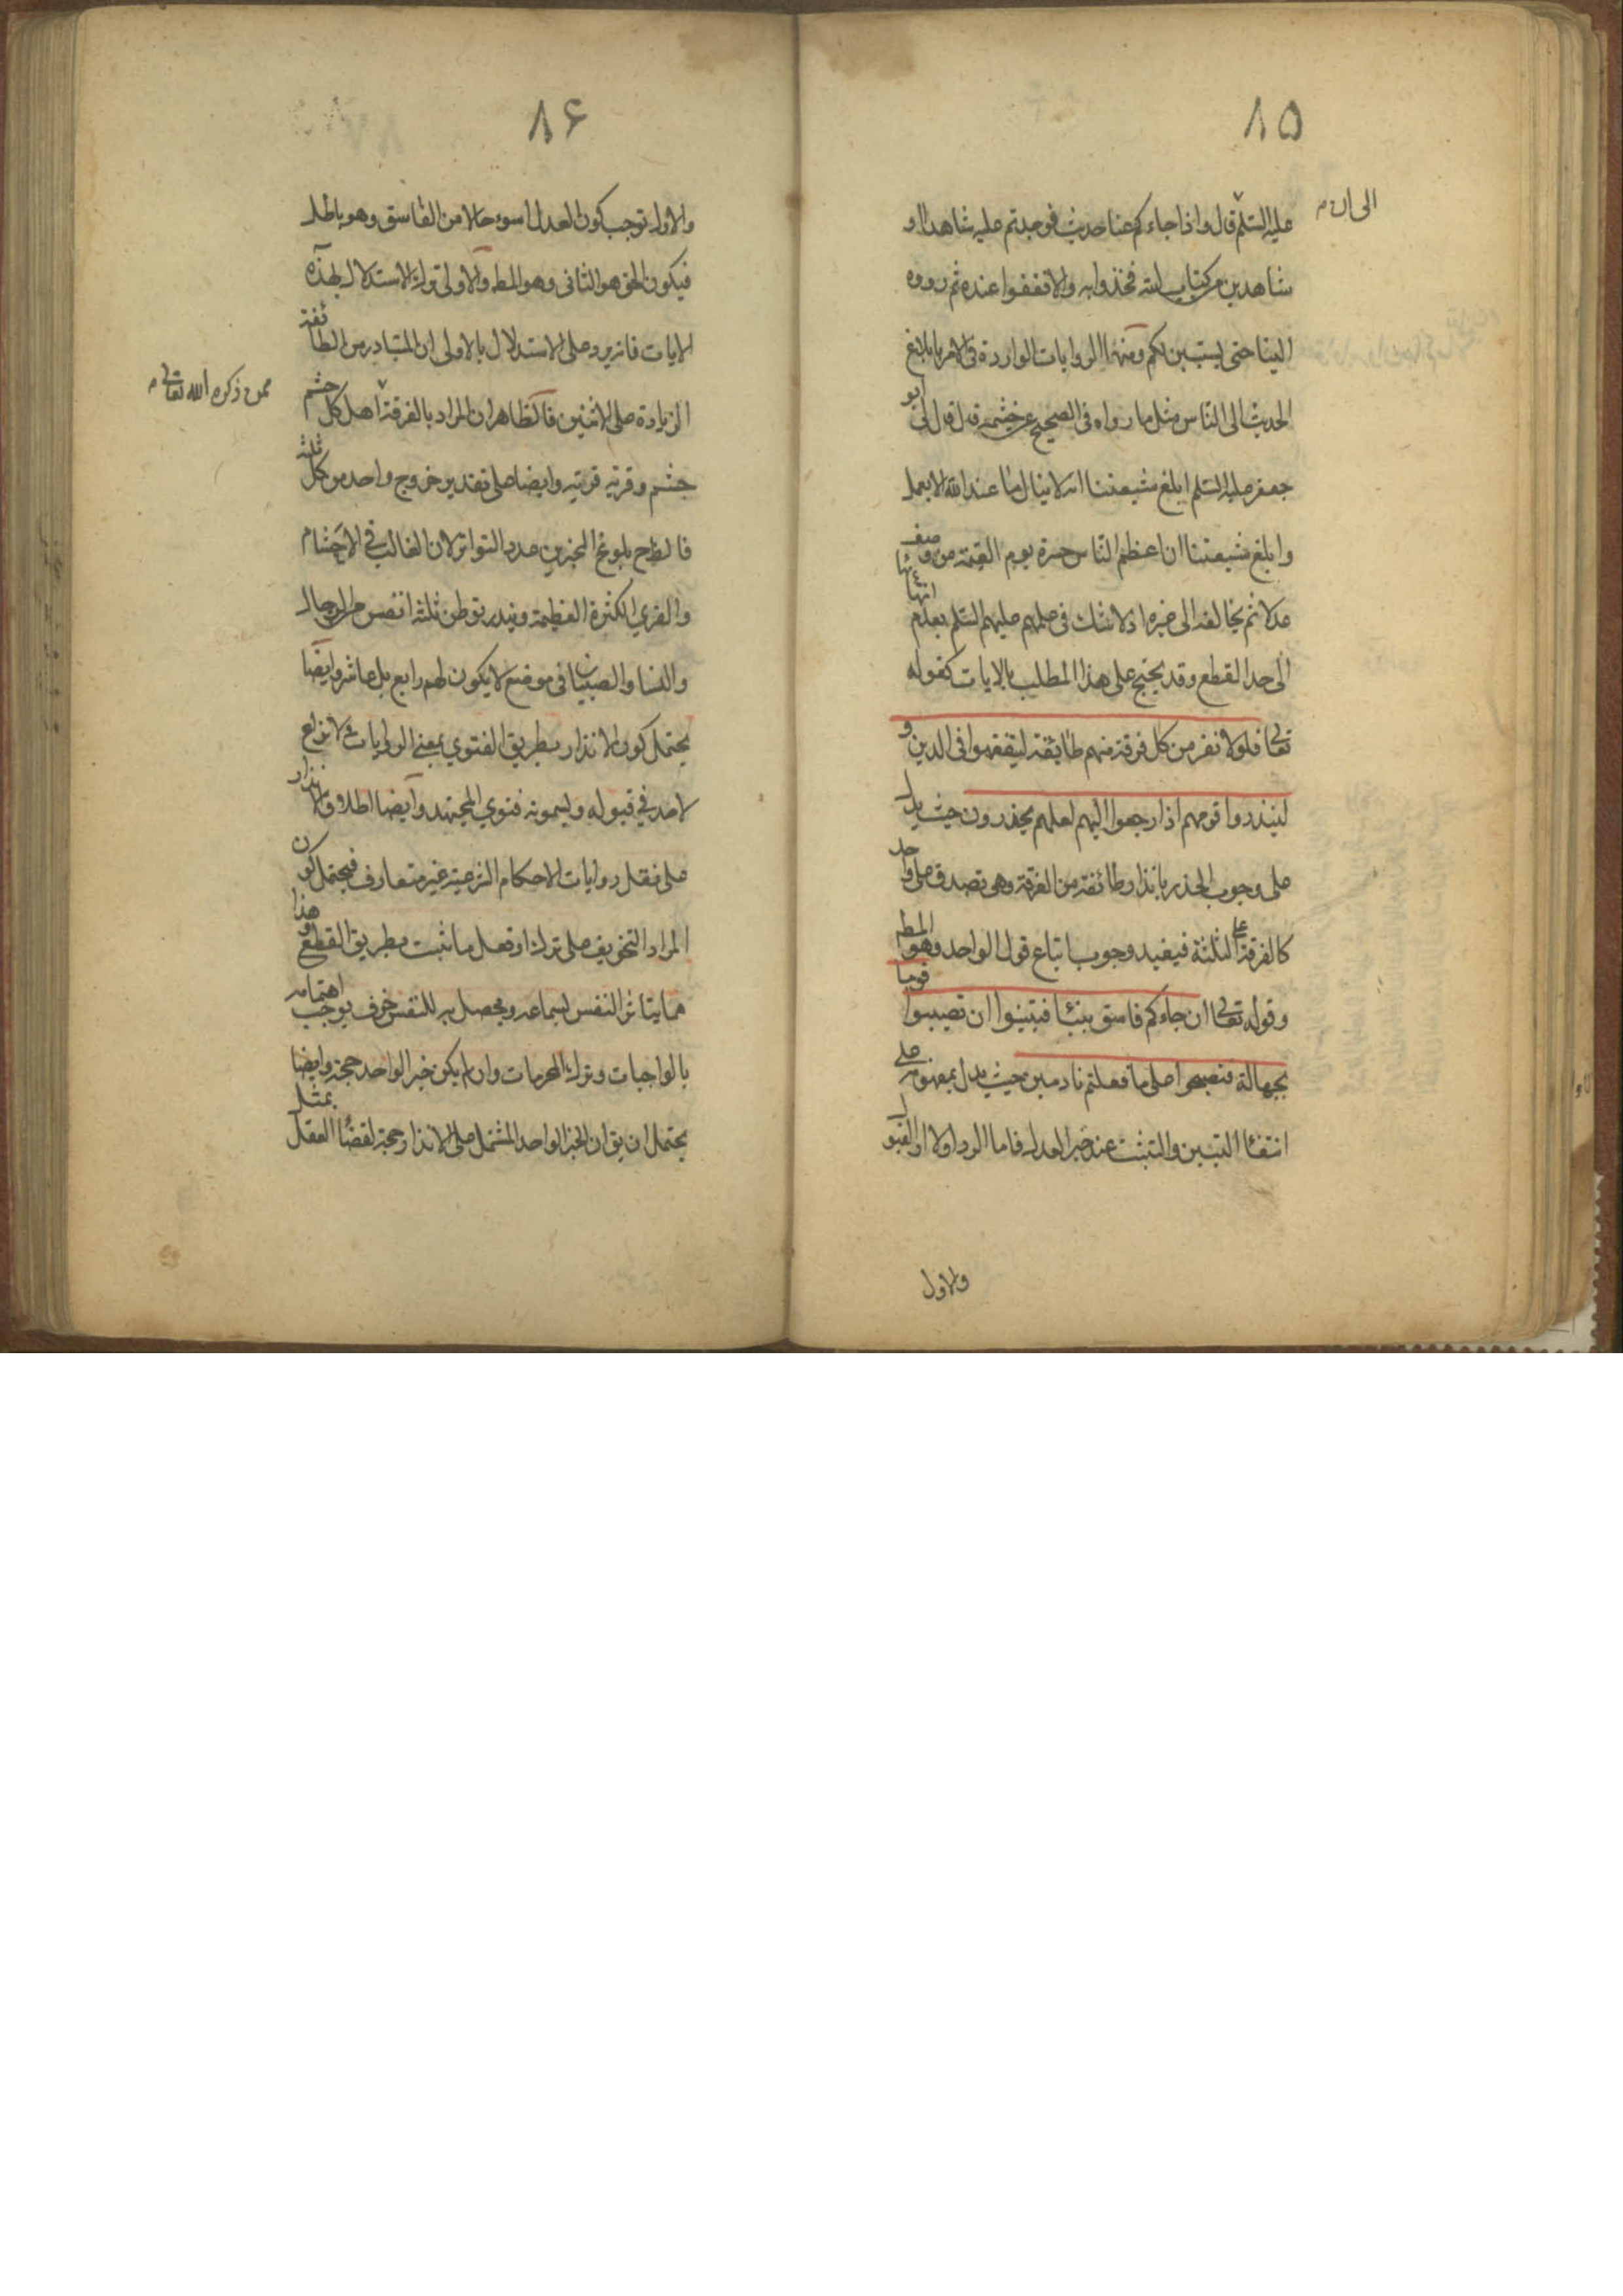 ٨٥
الى ان م
عليه السّلم قال واذا جاءكم عنا حديث فوجدتم عليه شاهدا او
شاهدين من كتاب الله فخذوا به والا فقفوا عنده ثم ردوه
الينا حتى يستبين لكم ومنها الروايات الواردة فى الامر بابلاغ
الحديث الى النّاس مثل ما رواه فى الصحيح عن خيثمة قال قال لى ابو
جعفر عليه السّلم ابلغ شيعتنا انه لا ينال ما عند الله الا بعمل
وابلغ شيعتنا ان اعظم النّاس حسرة يوم القيمة من وصف
عدلا ثم يخالفه الى غيره اذ لا شك فى علمهم عليهم السّلم بعدم انتهائها
الى حد القطع وقد يحتج على هذا المطلب بالايات كقوله
تعالى فلولا نفر من كل فرقة منهم طائفة ليتفقهوا فى الدين و
لينذروا قومهم اذا رجعوا اليهم لعلهم يحذرون حيث يدل
على وجوب الحذر بانذار طائفة من الفرقة وهى تصدق على واحد
كالفرقة على الثلثة فيفيد وجوب اتباع قول الواحد وهو المط
وقوله تعالى ان جاءكم فاسق بنبأ فتبينوا ان تصيبوا قوما
بجهالة فتصبحوا على ما فعلتم نادمين حيث يدل بمفهومه على
انتفاء التبين والتثبت عند خبر العدل فاما الرد اولا او القبول
والاول
٨۶
والاول توجب كون العدل اسوء حالا من الفاسق وهو باطل
فيكون الحق هو الثانى وهو المط والاولى ترك الاستدلال بهذه
الايات فانه يرد على الاستدلال بالاولى ان المتبادر من الطائفة
الزيادة على الاثنين فالظاهر ان المراد بالفرقة اهل كل حشم
ممن ذكره الله تعالى م
حشم وقرية قرية وايضا على تقدير خروج واحد من كل ثلثة
فالظ ح بلوغ المخبرين عدد التواتر لان الغالب فى الاحشام
والقرى الكثرة العظيمة ويندر توطن ثلثة انفس من الرجال
والنسا والصبيان فى موضع لا يكون لهم رابع بل عاشر وايضا
يحتمل كون الانذار بطريق الفتوى بمعنى الروايات ولا نزاع
لاحد فى قبوله ويسمونه فتوى المجتهد وايضا اطلاق الانذار
على نقل روايات الاحكام الشرعية غير متعارف فيحتمل كون
المراد التخويف على ترك او فعل ما ثبت بطريق القطع وهذا
مما يتاثر النفس بسماعه ويحصل به للنفس خوف يوجب اهتمامه
بالواجبات وترك المحرمات وان لم يكن خبر الواحد حجة وايضا
يحتمل ان يق ان الخبر الواحد المشتمل على الانذار حجة لقضاء العقل بمثل